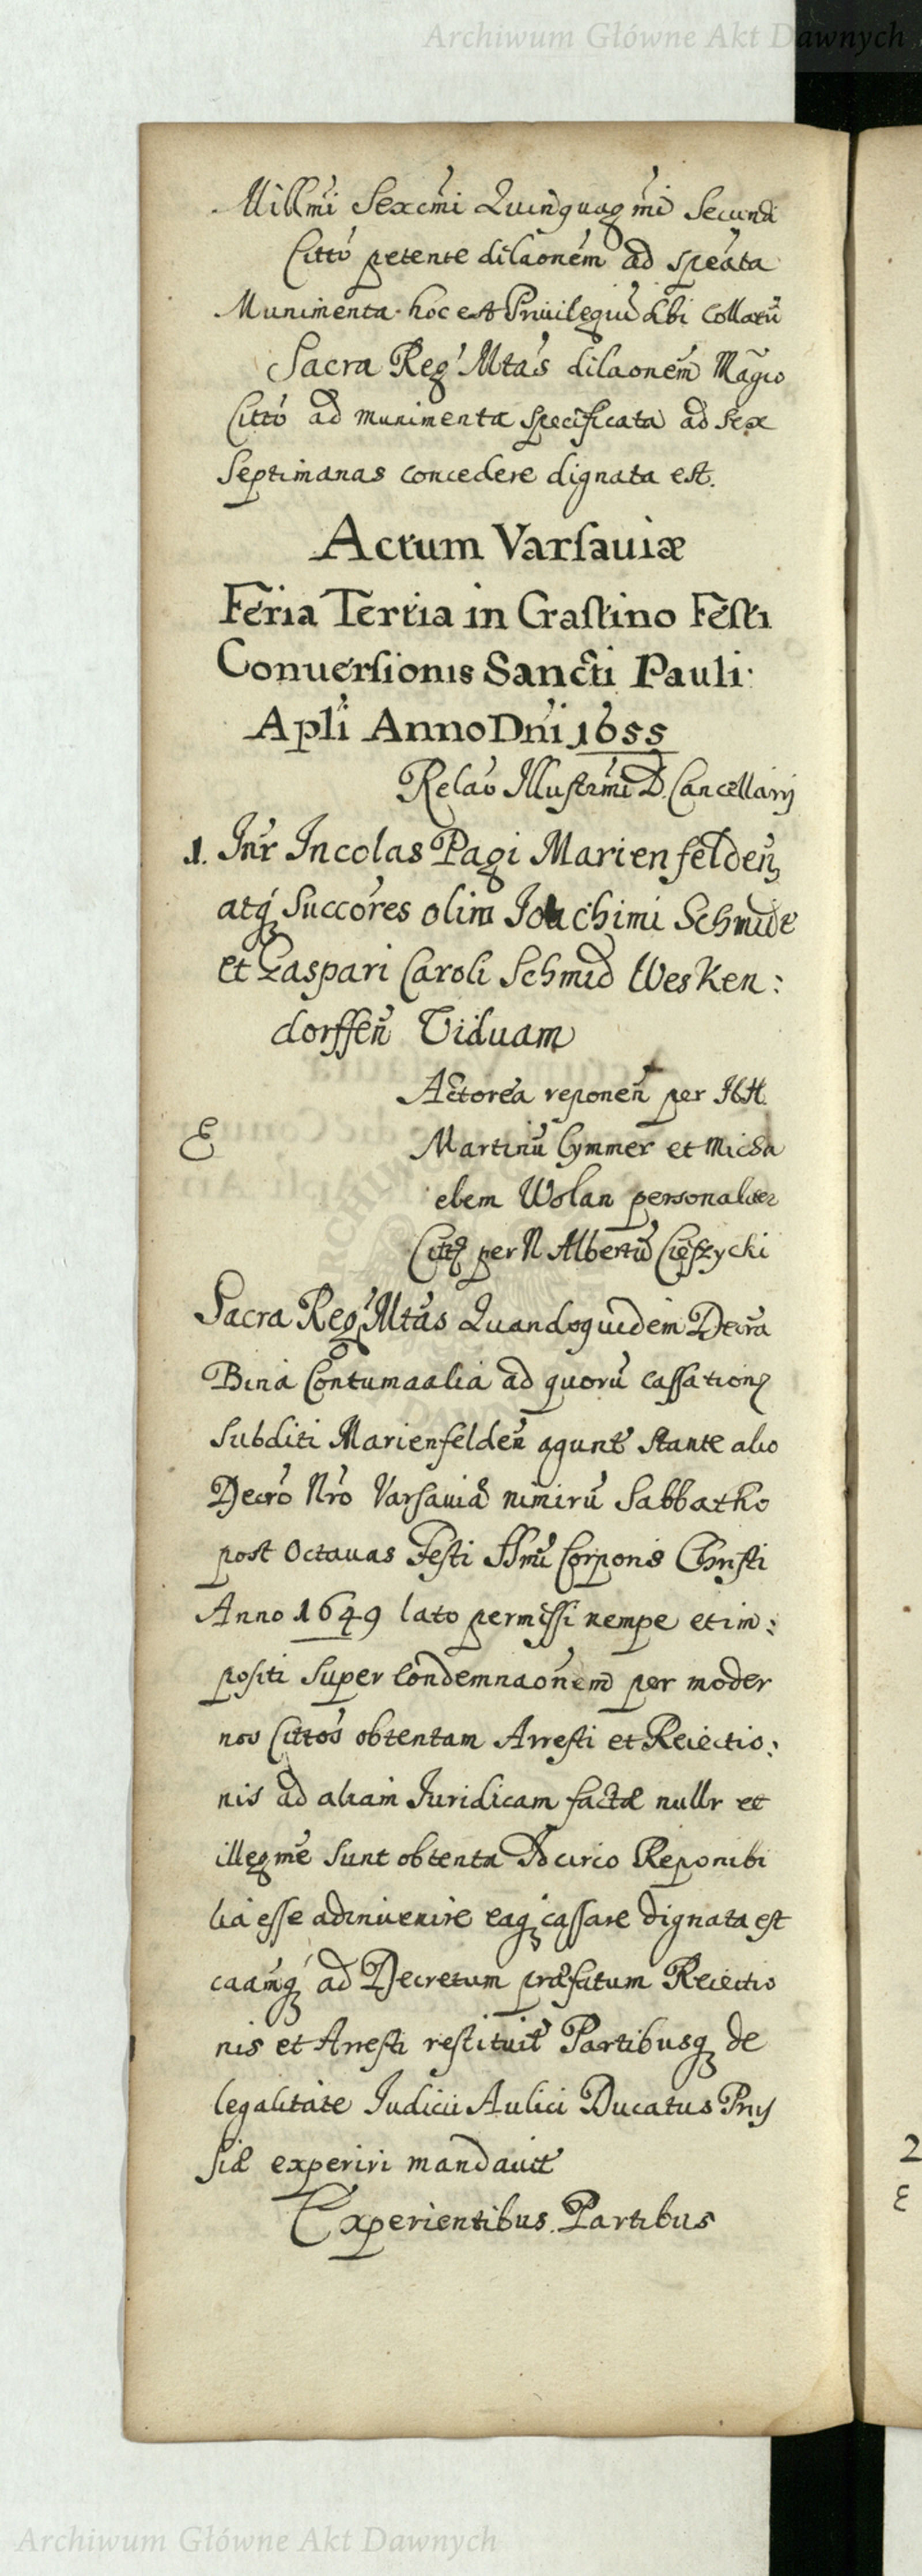 Archiwum Główne Akt Dawnych
Millmi Sexcmi Quinquagmi Secundi
Citto petente dilaonem ad speata
Munimenta hoc est Priuilegiu sibi collatu
Sacra Reg Mtas dilaonem Magco
Citto ad munimenta specificata ad sex
septimanas concedere dignata est.
Actum Varsauiæ
Feria Tertia in Crastino Festi
Conuersionis Sancti Pauli
Apli Anno Dni 1655
Relao Illustrmi D. Cancellarij
1. Intr Incolas Pagi Marienfelden
atq succores olim Joachimi Schmidt
et Gaspari Caroli Schmid Wesken:
dorffen Viduam
Actorea reponen per
Martinu Cymmer et Micha
elem Wolan personaliter
Citta per N Albertu Cieszycki
Sacra Reg Mtas Quandoquidem Decra
Bina Contumacialia ad quoru cassatione
subditi Marienfelden agunt stante alio
Decro Nro Varsauiæ nimiru Sabbatho
post Octauas Festi SSmi Corporis Christi
Anno 1649 lato permissi nempe et im:
positi super condemnaonem per moder
nos Cittos obtentam Arresti et Reiectio:
nis ad aliam Iuridicam factæ nullr et
illegme sunt obtenta Idcirco Reponibi
lia esse adinuenire eaq cassare dignata est
caamq ad Decretum præfatum Reiectio
nis et Arresti restituit Partibusq de
legalitate Iudicii Aulici Ducatus Prus
siæ experiri mandauit
Experientibus Partibus
2
Archiwum Główne Akt Dawnych